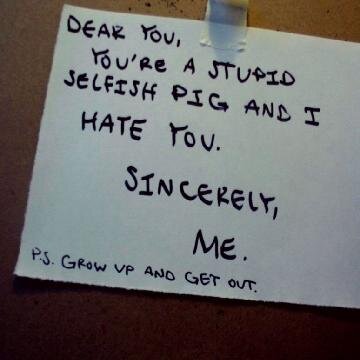 DEAR YOU,
YOU'RE A STUPID
SELFISH PIG AND I
HATE YOU.
SINCERELY,
ME.
P.S. GROW UP AND GET OUT.